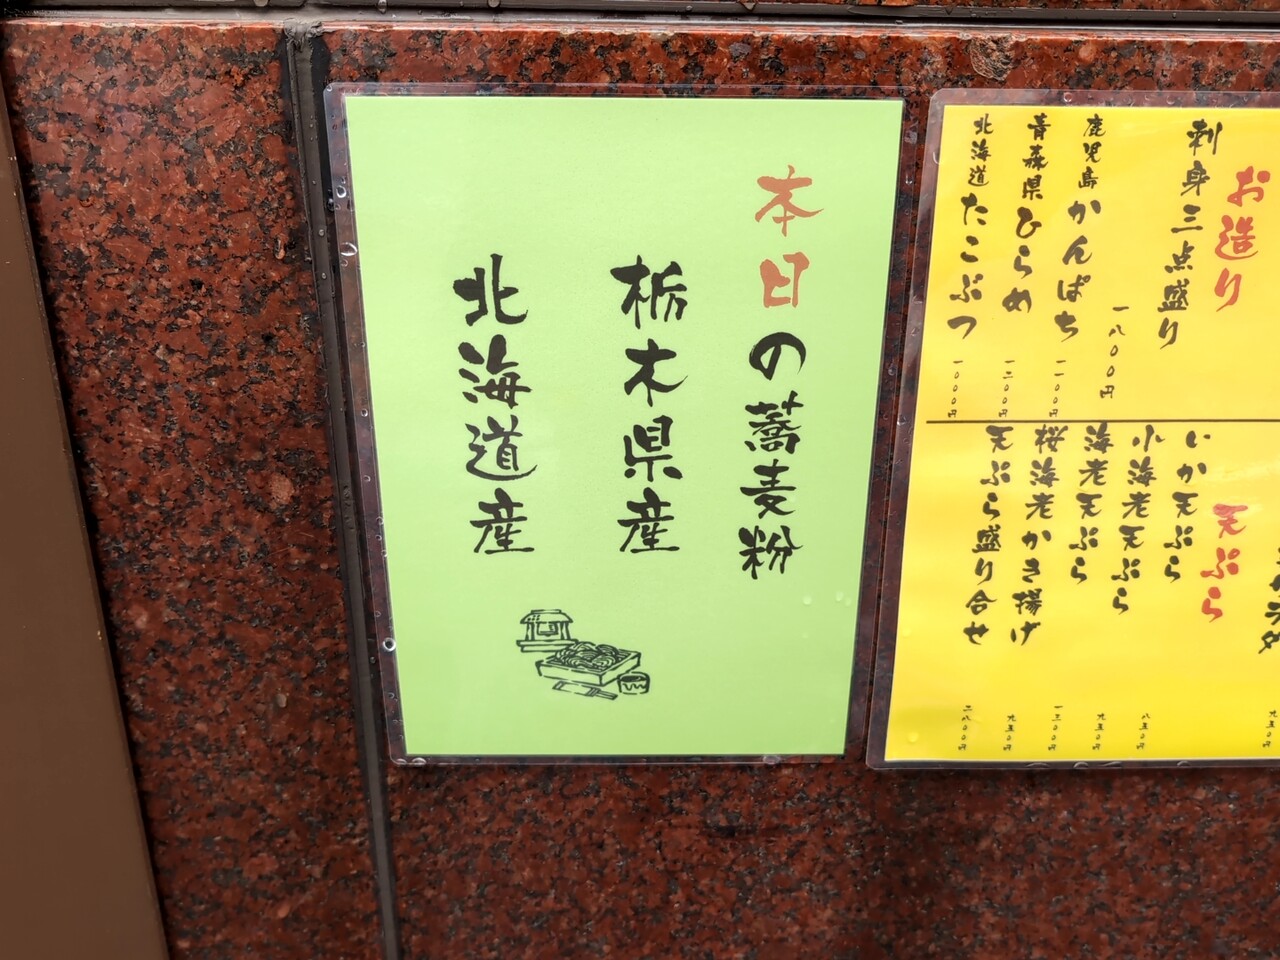 本日の蕎麦粉
栃木県産
北海道産
お造り
刺身三点盛り
一八〇〇円
鹿児島かんぱち
一一〇〇円
青森県ひらめ
一二〇〇円
北海道たこぶつ
一〇〇〇円
九五〇円
天ぷら
いか天ぷら
八五〇円
小海老天ぷら
九五〇円
海老天ぷら
一三〇〇円
桜海老かき揚げ
九五〇円
天ぷら盛り合せ
二八〇〇円